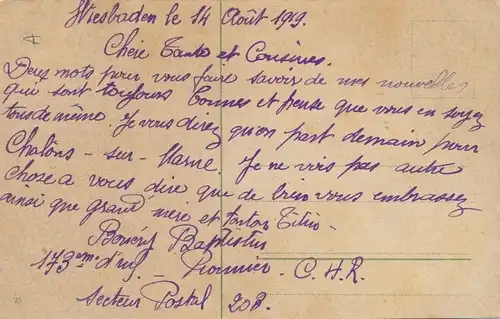 Wiesbaden le 14 Août 1919.
Chère Tante et Cousines.
Deux mots pour vous faire savoir de mes nouvelles
qui sont toujours bonnes et pense que vous en soyez
tous de même. Je vous direz qu'on part demain pour
Chalôns - sur - Marne. Je ne vois pas autre
chose a vous dire que de bien vous embrassez
ainsi que grand mère et tonton Titin.
Baptistin
173em d'inf - Pionnier - C.H.R.
Secteur Postal 208.